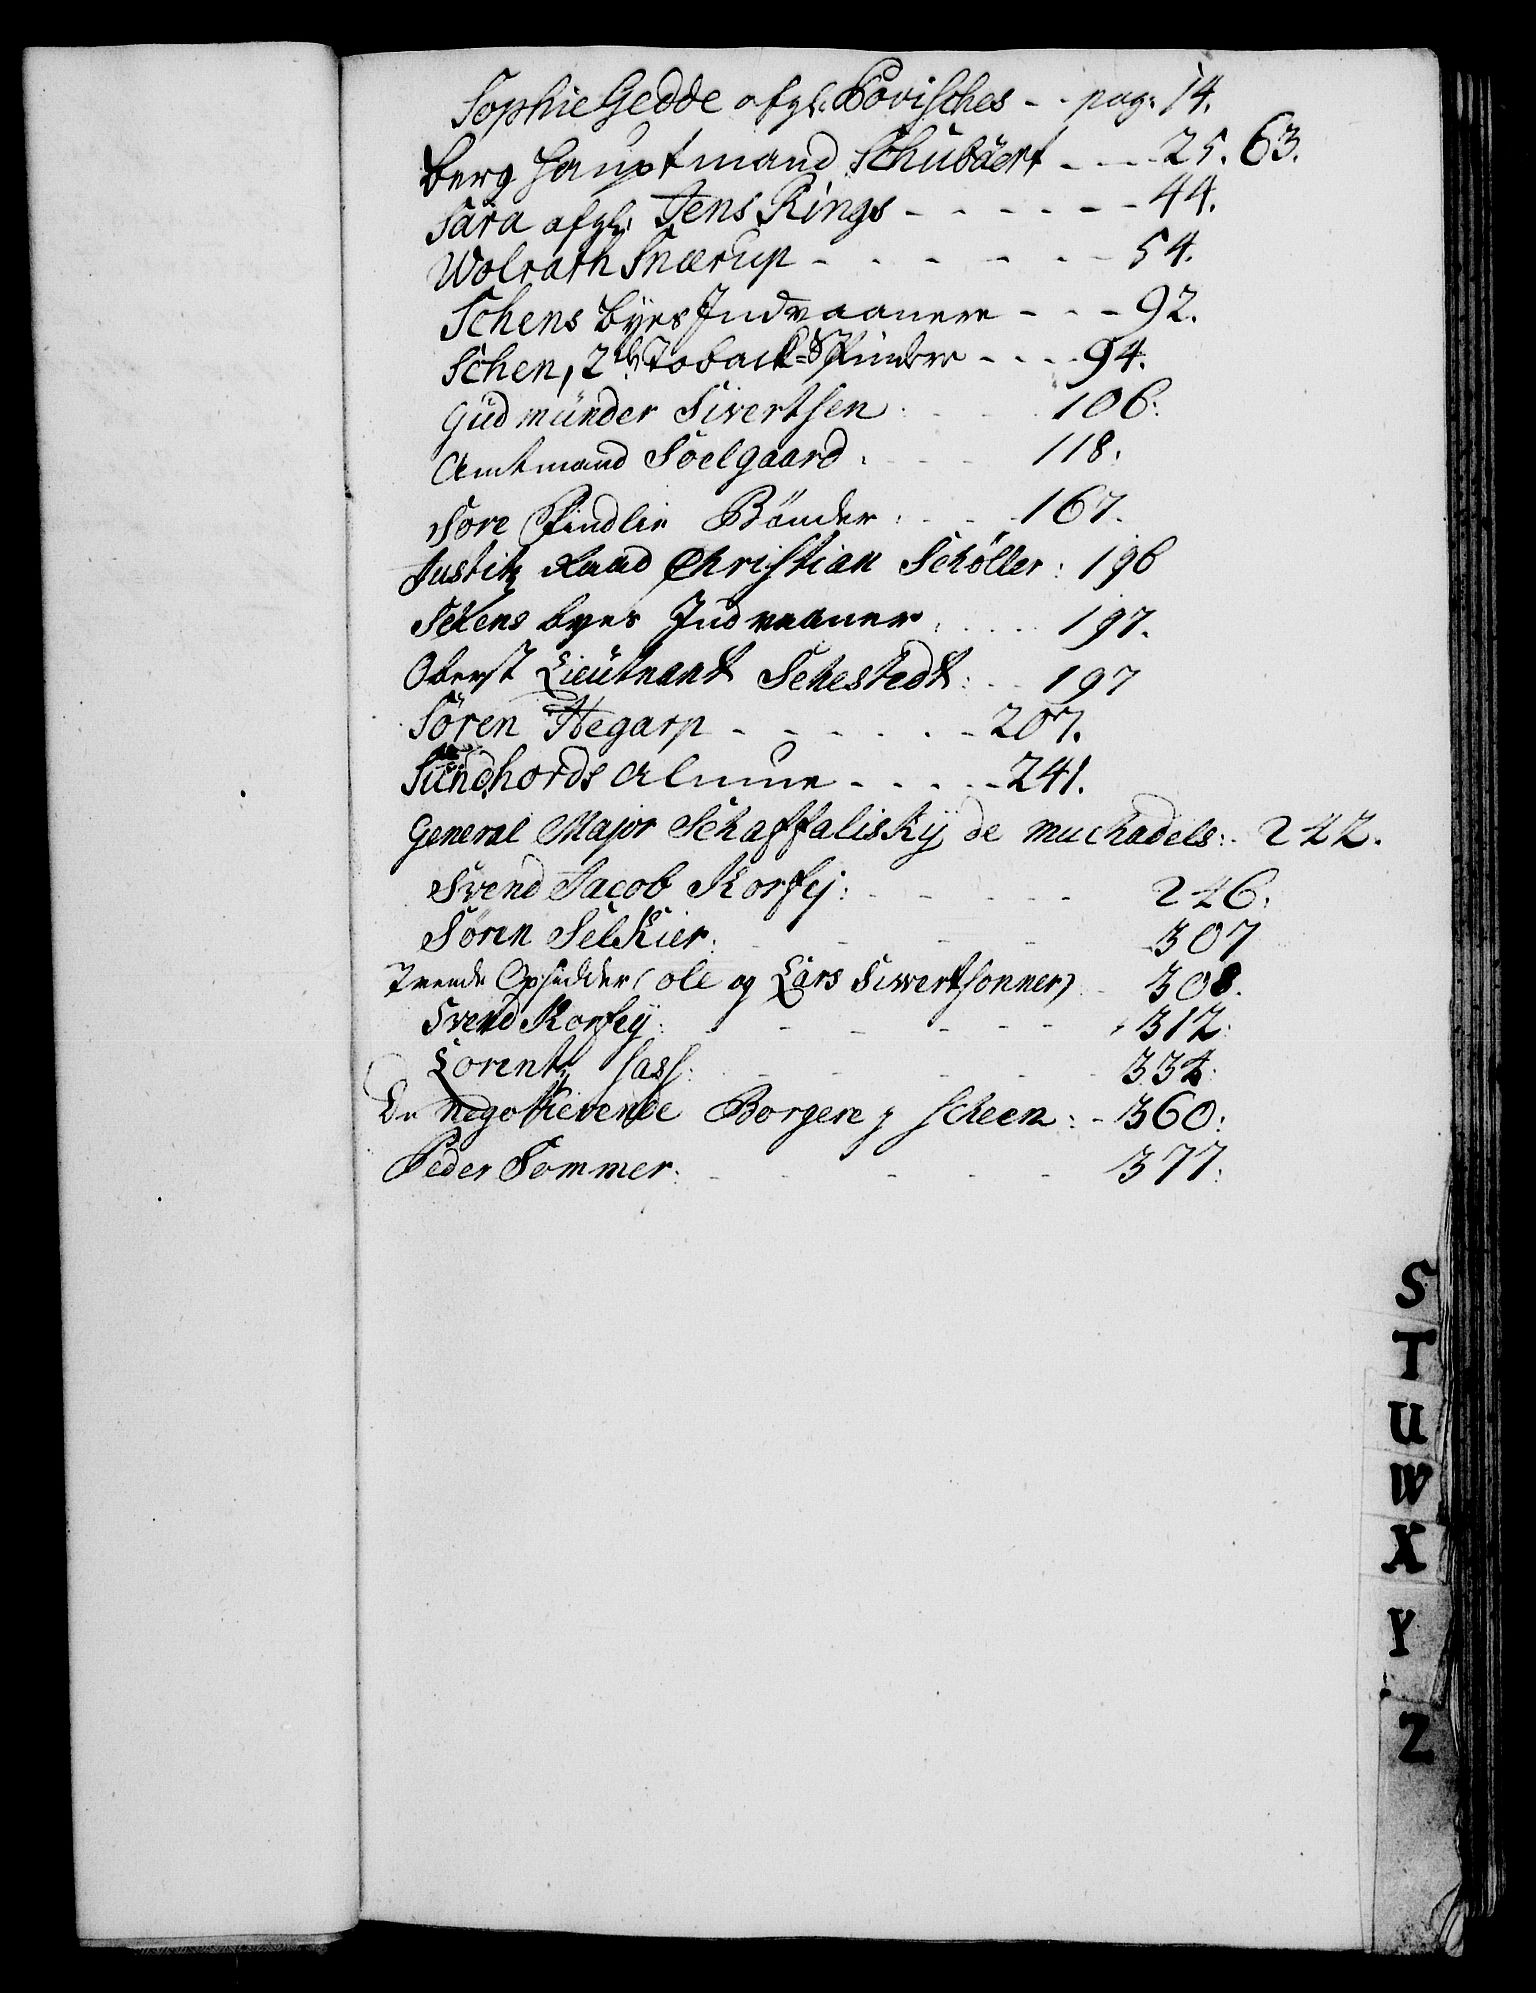 Sophie Gedde afgl. Povisches - - pag: 14.
Berg Hauptmand Schubäert - - - 25. 63.
Sara afgl: Jens Rings - - - - - - 44.
Wolrath Snærup - - - - - - 54.
Schens Byes Indvaanere - - - 92.
Schen, 2de Toback-Spindere - - - 94.
Gudmünder Sivertsen : - - 106:
Amtmand Soelgaard : - - - 118:
Sore Findlie Bönder : - - 167.
Justitz Raad Christian Schöller : 196
Schens byes Indvaaner : - - - 197.
Oberst Lieütnant Sehestedt : - - 197
Sören Hegarp - - - - - - 207.
Sundhords Almue - - - - - 241.
General Major Schaffalisky de muchadels : - 242.
Svend Jacob Korfej : - - - - - 246.
Sören Selkier : - - - - 307
Tvende Opsidder (ole og Lars Siwertsønner) - 308.
Svend Korfeÿ : - - - - - 312:
Lorentz Sass : - - - - - 334:
De negotierende Borgere j Scheen : - 360:
Peder Sommer : - - - - - 377:
S
T
U
W
X
Y
Z